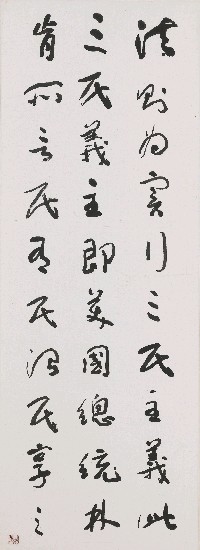 法則為實行三民主義此
三民義主即美國總統林
肯所言民有民治民享之